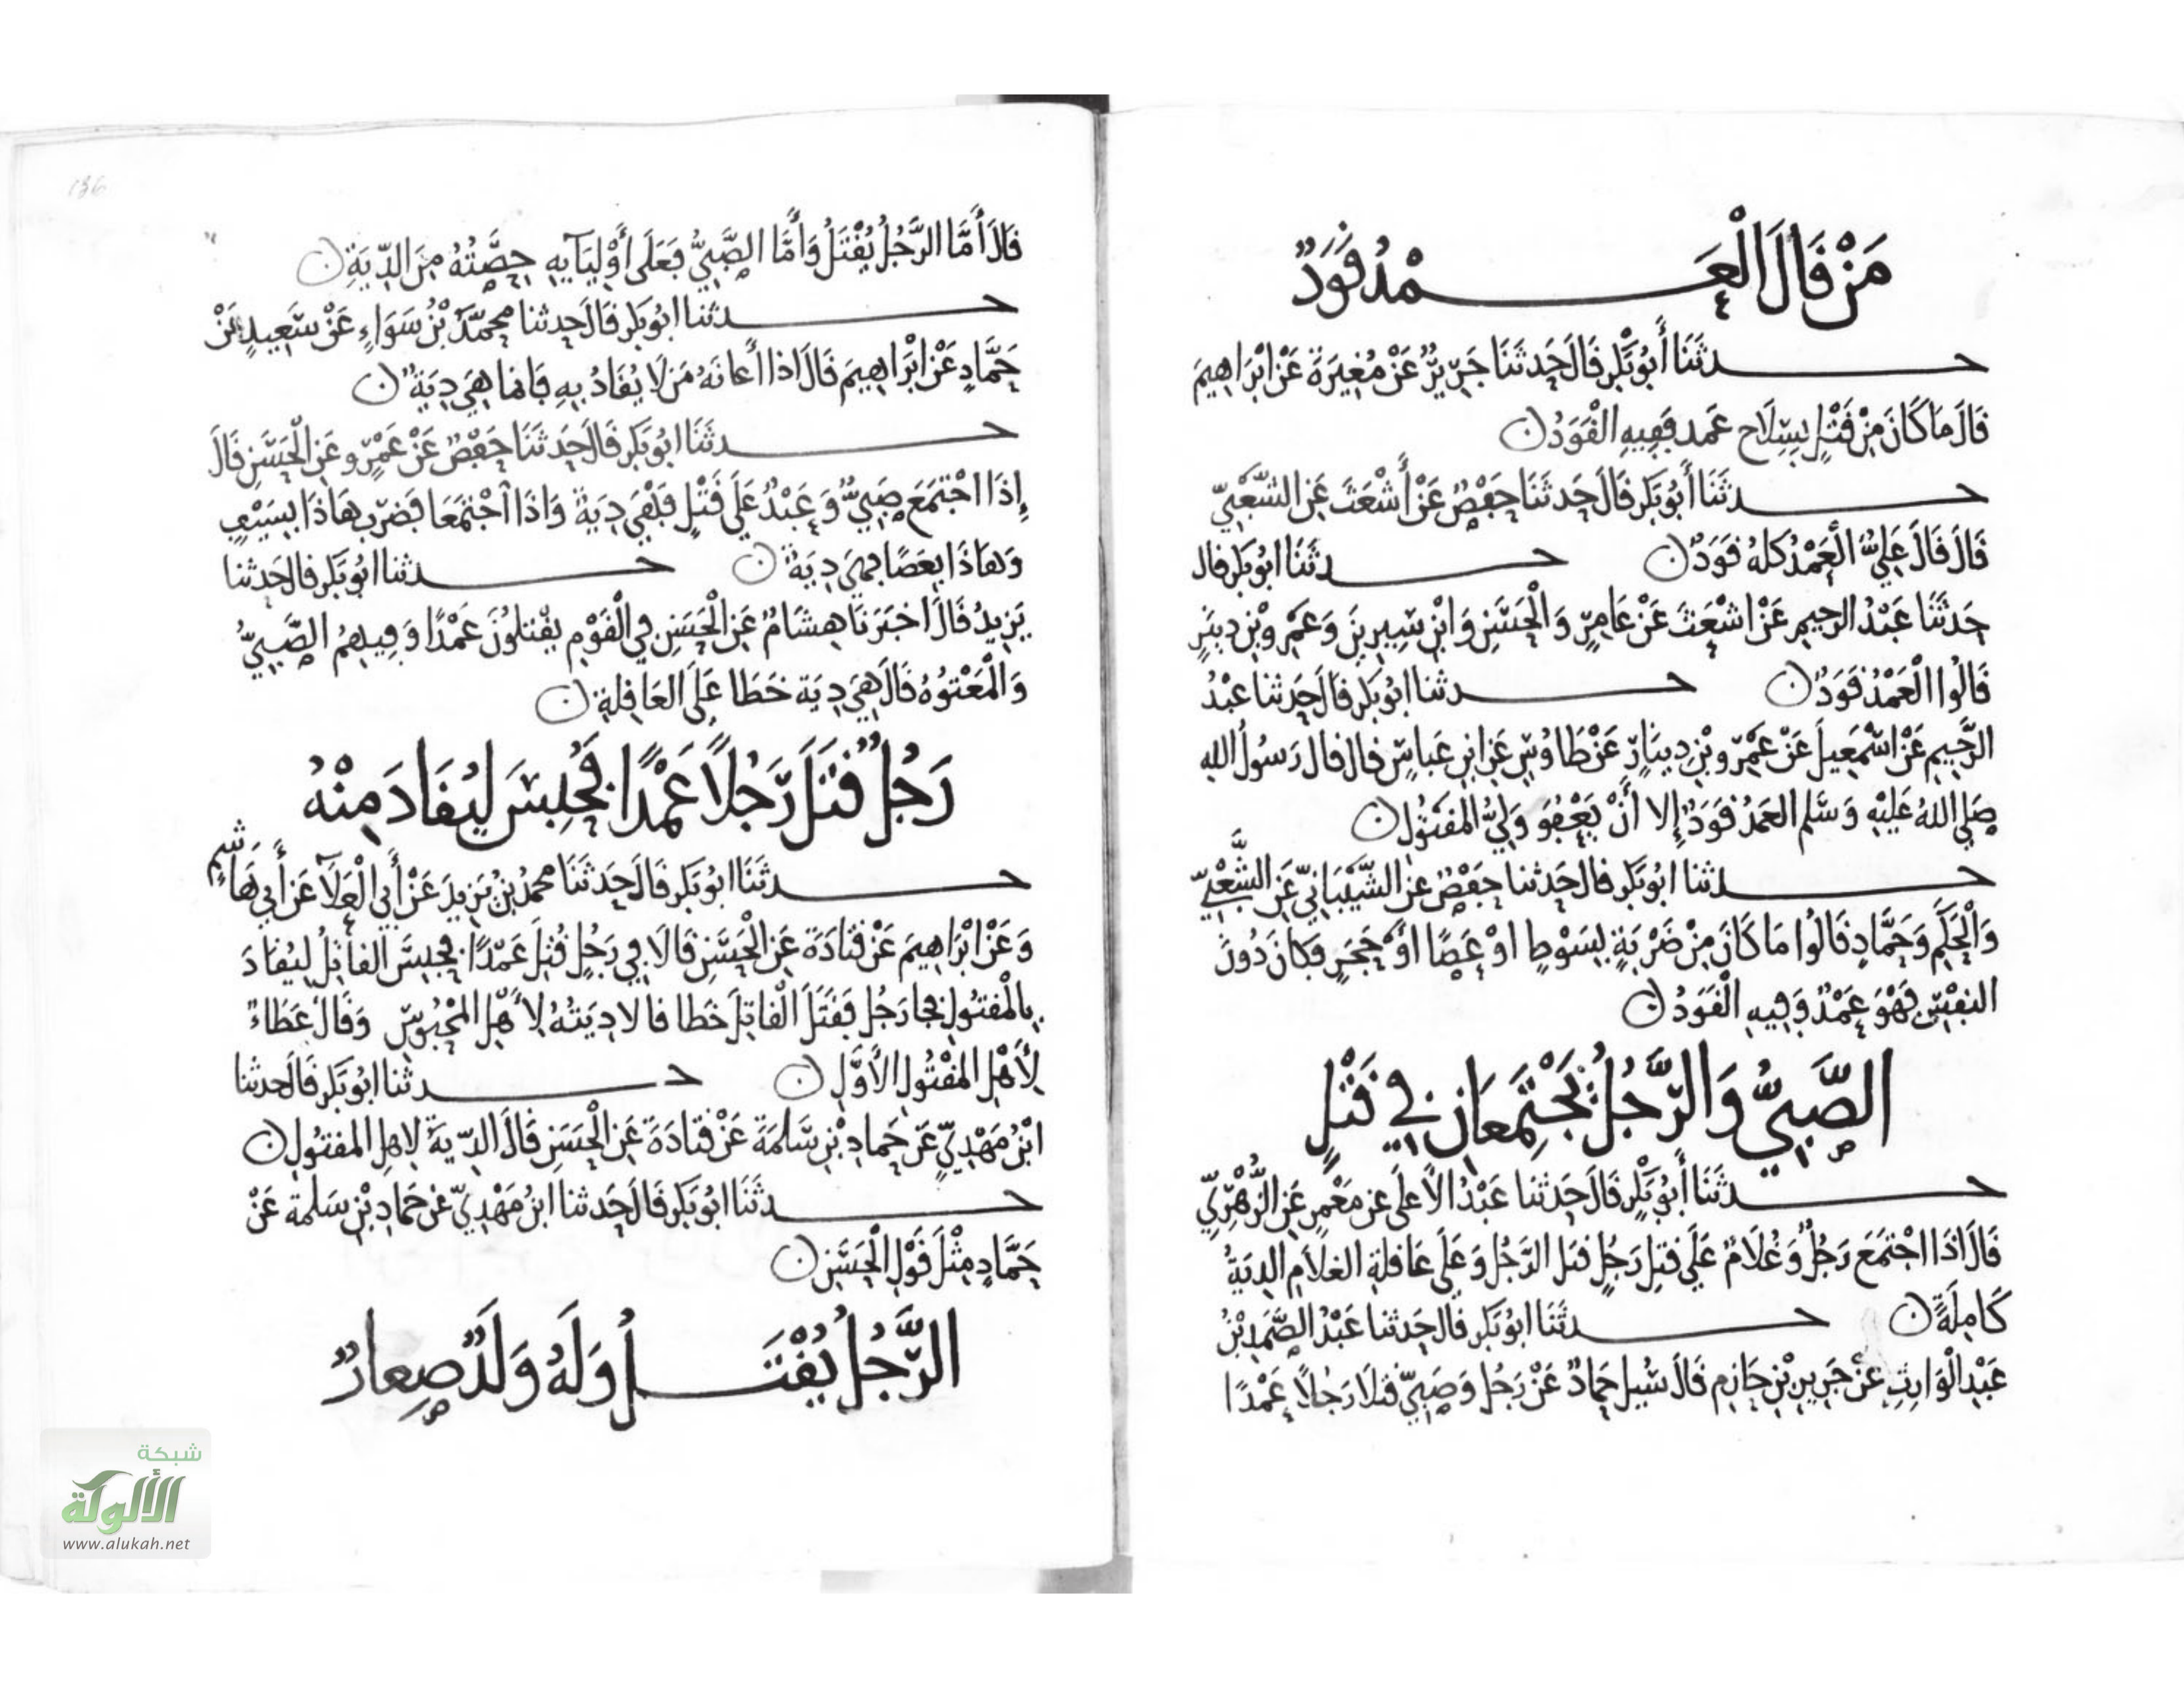 مَنْ قَالَ الْعَمْدُ قَوَدٌ
حدثَنَا أَبُو بَكْرٍ قَالَ حَدثَنَا جَرِيرٌ عَنْ مُغِيرَةَ عَنْ ابْرَاهِيمَ
قَالَ مَا كَانَ مِنْ قَتْلٍ بِسِلَاحٍ عَمد فَفِيهِ الْقَوَدُ ن
حدثَنَا أَبُو بَكْرٍ قَالَ حَدثَنَا حَفْصٌ عَنْ أَشْعَثَ عَنِ الشَّعْبِيِّ
قَالَ قَالَ عَلِيٌّ الْعَمْدُ كلهُ قَوَدٌ ن حدثَنَا ابُو بَكْرٍ قال
حَدثَنَا عَبْدُ الرحِيمِ عَنْ اشْعَثَ عَنْ عَامِرٍ وَالْحَسَنِ وَابْنِ سِيرِينَ وَعَمْرِو بْنِ دِينَرٍ
قَالُوا الْعَمْدُ قَوَدٌ ن حدثنا ابُو بَكْرٍ قَالَ حَدثنا عَبْدُ
الرَّحِيمِ عَنْ اسْمَعِيلَ عَنْ عَمْرِو بْنِ دِينَارٍ عَنْ طَاوُسٍ عَنِ ابنِ عَباسٍ قال قال رَسُولُ اللهِ
صَلى اللهُ عَلَيْهِ وَسَلم العَمْدُ قَوَدٌ إِلا أَنْ يَعْفُوَ وَلِيُّ المَقْتُولِ ن
حدثنا ابُو بَكْرٍ قال حَدثنا حَفْصٌ عَنِ الشَّيْبَانِيِّ عَنِ الشَّعْبِيِّ
وَالْحَكَمِ وَحَمَّادٍ قَالُوا مَا كَانَ مِنْ ضَرْبَةٍ بِسَوْطٍ اوْ عَصًا أَوْ حَجَرٍ فكَانَ دُونَ
النفْسِ فَهْوَ عَمْدٌ وَفِيهِ الْقَوَدُ ن
الصَّبِيُّ وَالرَّجُلُ يَجْتَمِعَانِ فِي قَتْلٍ
حدثَنَا أَبُو بَكْرٍ قَالَ حَدثنا عَبْدُ الأَعلَى عن مَعْمرٍ عَنِ الزُّهْرِيِّ
قَالَ اذَا اجْتَمَعَ رَجُلٌ وَغُلَامٌ عَلَى قتلِ رَجُلٍ قتلَ الرَّجُلُ وَعَلَى عَاقلةِ الغلَامِ الدِيَةُ
كَامِلَةً ن حدثَنَا ابُو بَكْرٍ قَالَ حَدثنا عَبْدُ الصَّمَدِ بْنُ
عَبْدِ الْوَارِثِ عَنْ جَرِيرِ بْنِ حَازِم قَالَ سُئِلَ حَمادٌ عَنْ رَجُلٍ وَصَبِيٍّ قتلَا رَجُلًا عَمْدًا
136
قَالَ أَمَّا الرَّجُلُ يُقْتَلُ وَأَمَّا الصَّبِيُّ فَعَلَى أَوْلِيَآيِهِ حِصَّتُهُ مِنَ الدِّيَةِ ن
حدثنا ابُو بَكْرٍ قَالَ حدثنا محمَّدُ بْنُ سَوَاءٍ عَنْ سَعِيدٍ عَنْ
حَمَّادٍ عَنْ ابْرَاهِيمَ قَالَ اذا أَعانَهُ مَن لَا يُقَادُ بِهِ فَإنما هِيَ دِيَةٌ ن
حدثَنَا ابُو بَكْرٍ قَالَ حَدثَنَا حَفْصٌ عَنْ عَمْرٍو عَنِ الْحَسَنِ قَالَ
إِذَا اجْتَمَعَ صَبِيٌّ وَعَبْدٌ عَلَى قَتْلٍ فَهْيَ دِيَةٌ وَاذَا اجْتَمَعَا فَضَرَبَ هَاذَا بِسَيْفٍ
وَهَاذَا بِعَصًا فهِيَ دِيَةٌ ن حدثنا ابُو بَكْرٍ قال حَدثنا
يَزِيدُ قَالَ اخبَرَنَا هِشَامٌ عَنِ الْحَسَنِ فِي الْقَوْمِ يَقْتلُونَ عَمْدًا وَفِيهِمُ الصَّبِيُّ
وَالْمَعْتُوهُ قَالَ هِيَ دِيَة خَطَا عَلَى العَاقِلَةِ ن
رَجُلٌ قَتَلَ رَجُلًا عَمْدًا فَحُبِسَ لِيُقَادَ مِنْهُ
حدثَنَا ابُو بَكْرٍ قَالَ حَدثَنَا محمدُ بْنُ يَزِيدَ عَنْ أَبِي الْعَلَآ عَن أَبِي هَاشِمٍ
وَعَنْ ابْرَاهِيمَ عَنْ قتَادَةَ عَنِ الْحَسَنِ قَالَا فِي رَجُلٍ قُتِلَ عَمْدًا فحبِسَ القاتِلُ لِيُقَادَ
بِالْمقتُولِ فجا رَجُلٌ فَقَتَلَ الْقاتِلَ خَطا قالا دِيَتُهُ لِأَهْلِ المَحْبُوسِ وَقَالَ عَطَاءٌ
لِأَهْلِ المَقْتُولِ الأَوَّلِ ن حدثنا ابُو بَكْرٍ قَالَ حدثنا
ابْنُ مَهْدِيٍّ عَن حَمادِ بْنِ سَلَمَةَ عَنْ قتَادَةَ عَنِ الْحَسَنِ قَالَ الدِّيَةُ لِاهلِ المَقتُولِ ن
حدثَنَا ابُو بَكْرٍ قَالَ حَدثنا ابنُ مَهْدِيٍّ عَن حَمادِ بْنِ سَلمَةَ عَنْ
حَمَّادٍ مِثْلَ قَوْلِ الْحَسَنِ ن
الرَّجُلُ يُقْتَلُ وَلَهُ وَلَدٌ صِغارٌ
شبكة
الألوكة
www.alukah.net